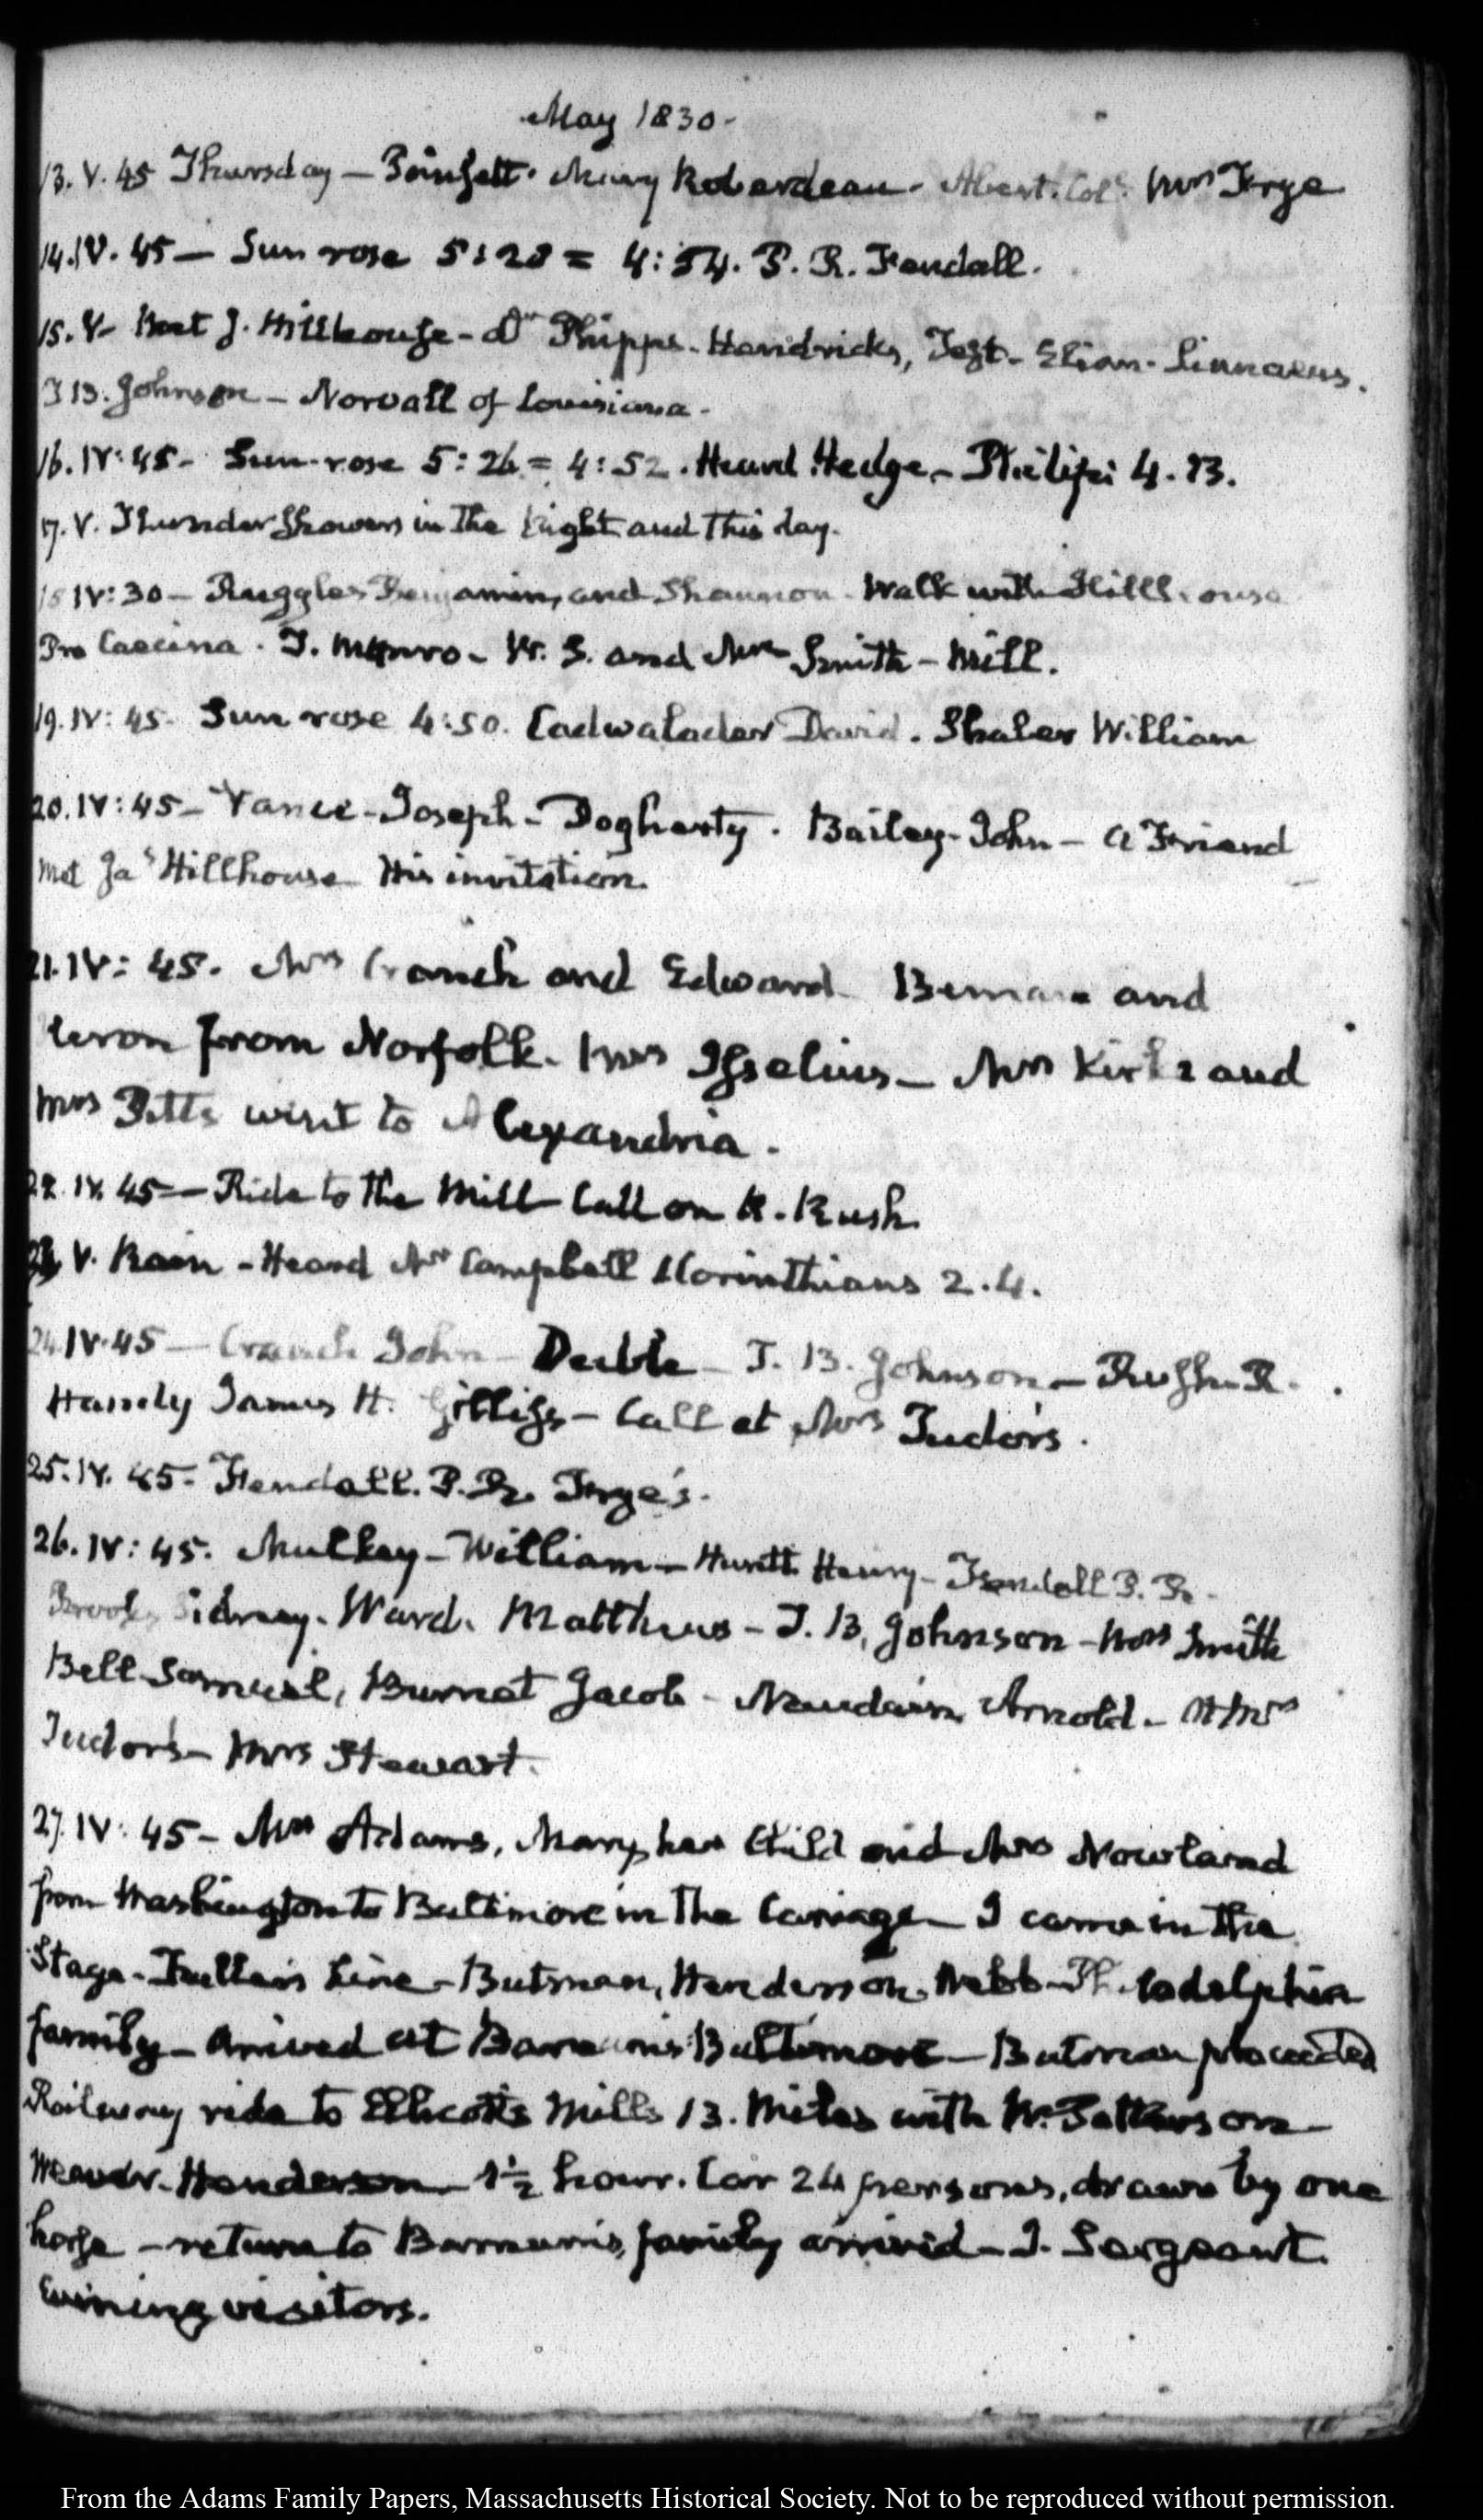 May 1830.
13. V. 45 Thursday — Poinsett. Mary Roberdeau. Abert. Coll. Mrs Frye
14. IV. 45 — Sun rose 5:28 = 4:54. P. R. Fendall.
15. V — Met J. Hillhouse — Dr Phipps. Hendricks, Test — Elian. Linnaeus.
J B. Johnson — Norvall of Louisiana.
16. IV: 45 — Sun rose 5:26 = 4:52. Heard Hedge — Philipi 4. 13.
17. V. Thunder Showers in the Night and this day.
18 IV: 30 — Ruggles Benjamin, and Shannon. Walk with Hillhouse
Pro Caecina. J. Munro — W. S. and Mrs Smith — Mill.
19. IV: 45. Sun rose 4:50. Cadwalader David. Shaler William
20. IV: 45 — Vance — Joseph — Dogherty. Bailey — John — a Friend
Met Jas Hillhouse His invitation.
21. IV: 45. Mrs Cranch and Edward and
from Norfolk. Mrs Iselius — Mrs Kirk and
Mrs Pitts went to Alexandria.
22. IV. 45 — Ride to the Mill Call on R. Rush.
23. V. Rain — Heard Mr Campbell 1 Corinthians 2. 4.
24. IV. 45 — Cranch John — Deeble — J. B. Johnson — Rush R.
Handy James H. Gilliss — Call at Mrs Tudor's.
25. IV. 45 — Fendall. P. R. Frye's.
26. IV: 45. Mulkey — William — Huntt Henry — Fendall P. R.
Brooks Sidney. Ward. Matthews — J. B. Johnson — Mrs Smith
Bell Samuel, Burnet Jacob — Naudain Arnold — At Mrs
Tudor's — Mrs Stewart.
27. IV: 45 — Mrs Adams, Mary, her Child and Mrs Nowland
from Washington to Baltimore in the Carriage — I came in the
Stage — Line — Butman, Henderson, Webb — Philadelphia
family — Arrived at Barnum's Baltimore — Butman proceeded
Railway ride to Ellicott's Mills 13. Miles with W. Patterson —
Henderson — 1½ hour. Car 24 persons, drawn by one
horse — return to Barnum's, family arrived — J. Sergeant.
Evening visitors.
From the Adams Family Papers, Massachusetts Historical Society. Not to be reproduced without permission.